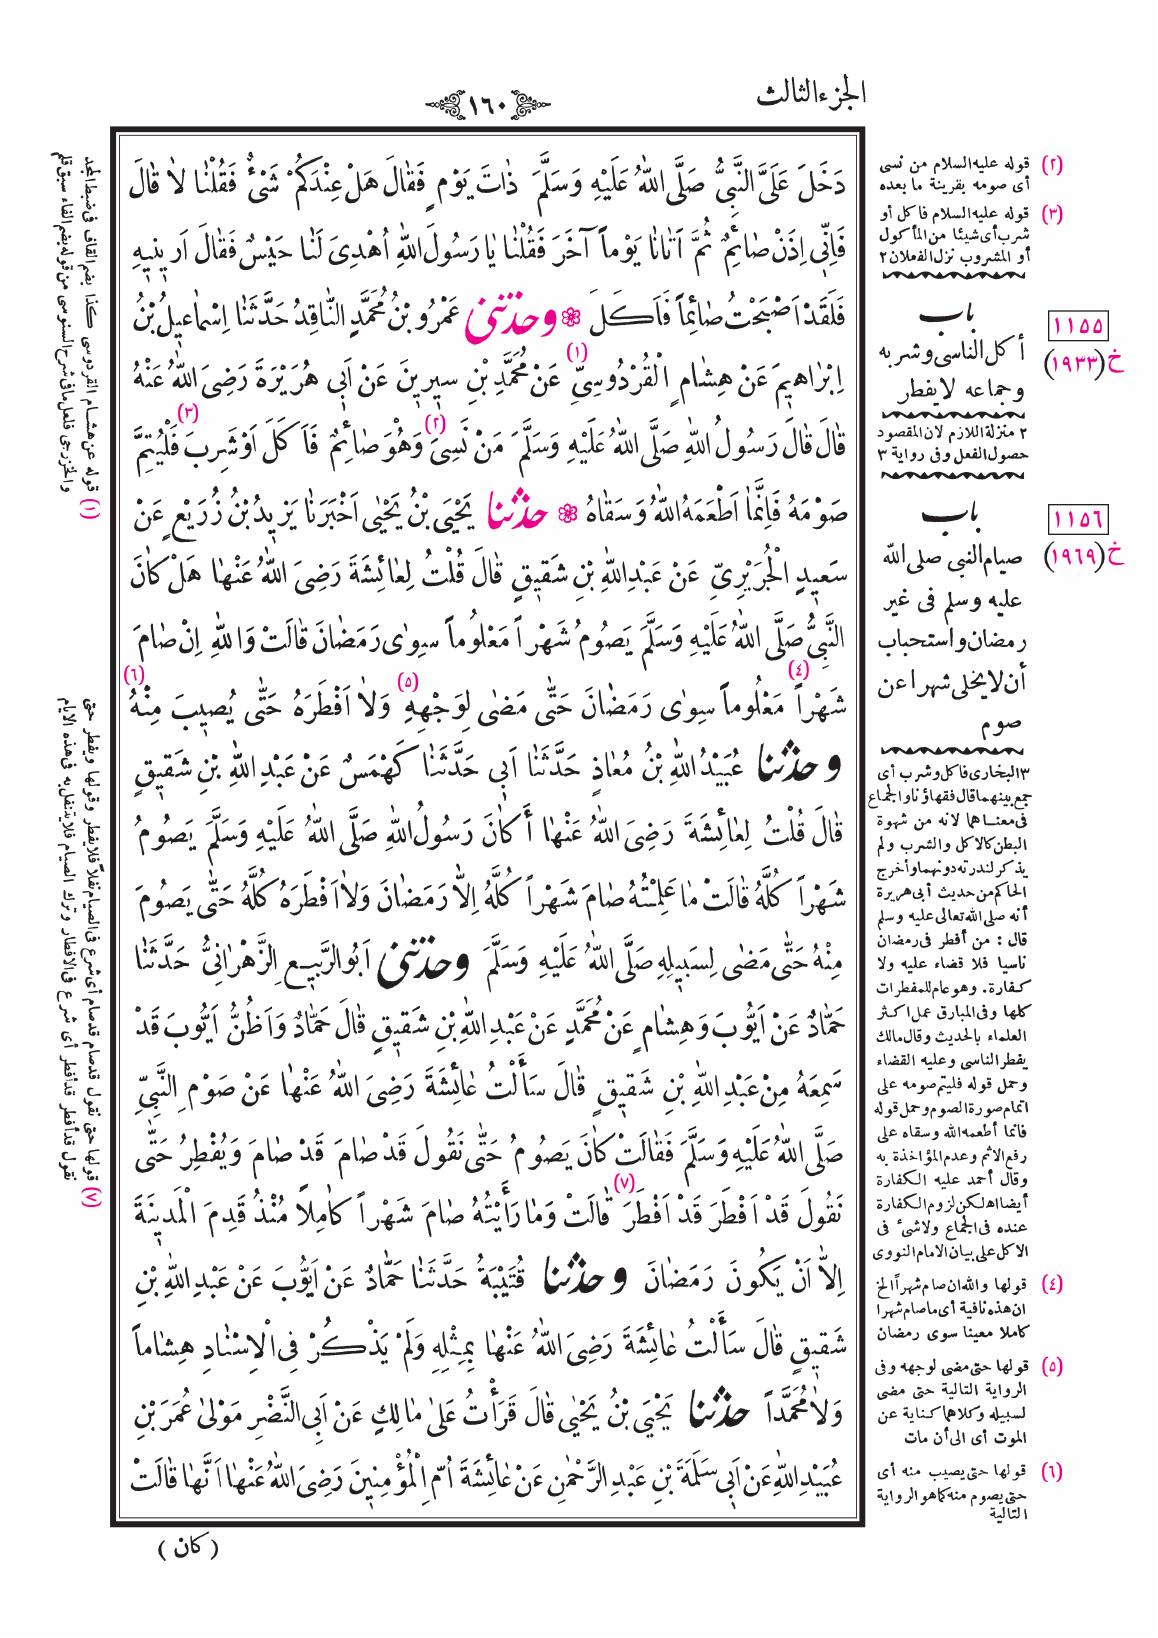 الجزء الثالث
١٦٠
دَخَلَ عَلَىَّ النَّبِىُّ صَلَّى اللهُ عَلَيْهِ وَسَلَّمَ ذَاتَ يَوْمٍ فَقَالَ هَلْ عِنْدَكُمْ شَىْءٌ فَقُلْنَا لَا قَالَ
فَاِنِّى اِذَنْ صَائِمٌ ثُمَّ اَتَانَا يَوْماً آخَرَ فَقُلْنَا يَا رَسُولَ اللهِ اُهْدِىَ لَنَا حَيْسٌ فَقَالَ اَرِينِيهِ
فَلَقَدْ اَصْبَحْتُ صَائِماً فَاَكَلَ ❁ وحدثنى عَمْرُو بْنُ مُحَمَّدٍ النَّاقِدُ حَدَّثَنَا اِسْمَاعِيلُ بْنُ
اِبْرَاهِيمَ عَنْ هِشَامٍ الْقُرْدُوسِىِّ (١) عَنْ مُحَمَّدِ بْنِ سِيرِينَ عَنْ اَبِى هُرَيْرَةَ رَضِىَ اللهُ عَنْهُ
قَالَ قَالَ رَسُولُ اللهِ صَلَّى اللهُ عَلَيْهِ وَسَلَّمَ مَنْ نَسِىَ (٢) وَهُوَ صَائِمٌ فَاَكَلَ اَوْ شَرِبَ (٣) فَلْيُتِمَّ
صَوْمَهُ فَاِنَّمَا اَطْعَمَهُ اللهُ وَسَقَاهُ ❁ حدثنا يَحْيَى بْنُ يَحْيٰى اَخْبَرَنَا يَزِيدُ بْنُ زُرَيْعٍ عَنْ
سَعِيدٍ الْجُرَيْرِىِّ عَنْ عَبْدِ اللهِ بْنِ شَقِيقٍ قَالَ قُلْتُ لِعَائِشَةَ رَضِىَ اللهُ عَنْهَا هَلْ كَانَ
النَّبِىُّ صَلَّى اللهُ عَلَيْهِ وَسَلَّمَ يَصُومُ شَهْراً مَعْلُوماً سِوٰى رَمَضَانَ قَالَتْ وَاللهِ اِنْ صَامَ
شَهْراً (٤) مَعْلُوماً سِوٰى رَمَضَانَ حَتّٰى مَضٰى لِوَجْهِهِ (٥) وَلَا اَفْطَرَهُ حَتّٰى يُصِيبَ مِنْهُ (٦)
وحدثنا عُبَيْدُ اللهِ بْنُ مُعَاذٍ حَدَّثَنَا اَبِى حَدَّثَنَا كَهْمَسٌ عَنْ عَبْدِ اللهِ بْنِ شَقِيقٍ
قَالَ قُلْتُ لِعَائِشَةَ رَضِىَ اللهُ عَنْهَا أَكَانَ رَسُولُ اللهِ صَلَّى اللهُ عَلَيْهِ وَسَلَّمَ يَصُومُ
شَهْراً كُلَّهُ قَالَتْ مَا عَلِمْتُهُ صَامَ شَهْراً كُلَّهُ اِلَّا رَمَضَانَ وَلَا اَفْطَرَهُ كُلَّهُ حَتّٰى يَصُومَ
مِنْهُ حَتّٰى مَضٰى لِسَبِيلِهِ صَلَّى اللهُ عَلَيْهِ وَسَلَّمَ وحدثنى اَبُو الرَّبِيعِ الزَّهْرَانِىُّ حَدَّثَنَا
حَمَّادٌ عَنْ اَيُّوبَ وَهِشَامٍ عَنْ مُحَمَّدٍ عَنْ عَبْدِ اللهِ بْنِ شَقِيقٍ قَالَ حَمَّادٌ وَاَظُنُّ اَيُّوبَ قَدْ
سَمِعَهُ مِنْ عَبْدِ اللهِ بْنِ شَقِيقٍ قَالَ سَأَلْتُ عَائِشَةَ رَضِىَ اللهُ عَنْهَا عَنْ صَوْمِ النَّبِىِّ
صَلَّى اللهُ عَلَيْهِ وَسَلَّمَ فَقَالَتْ كَانَ يَصُومُ حَتّٰى نَقُولَ قَدْ صَامَ قَدْ صَامَ وَيُفْطِرُ حَتّٰى
نَقُولَ قَدْ اَفْطَرَ قَدْ اَفْطَرَ (٧) قَالَتْ وَمَا رَأَيْتُهُ صَامَ شَهْراً كَامِلاً مُنْذُ قَدِمَ الْمَدِينَةَ
اِلَّا اَنْ يَكُونَ رَمَضَانَ وحدثنا قُتَيْبَةُ حَدَّثَنَا حَمَّادٌ عَنْ اَيُّوبَ عَنْ عَبْدِ اللهِ بْنِ
شَقِيقٍ قَالَ سَأَلْتُ عَائِشَةَ رَضِىَ اللهُ عَنْهَا بِمِثْلِهِ وَلَمْ يَذْكُرْ فِى الْاِسْنَادِ هِشَاماً
وَلَا مُحَمَّداً حدثنا يَحْيَى بْنُ يَحْيٰى قَالَ قَرَأْتُ عَلىٰ مَالِكٍ عَنْ اَبِى النَّضْرِ مَوْلىٰ عُمَرَ بْنِ
عُبَيْدِ اللهِ عَنْ اَبِى سَلَمَةَ بْنِ عَبْدِ الرَّحْمٰنِ عَنْ عَائِشَةَ اُمِّ الْمُؤْمِنِينَ رَضِىَ اللهُ عَنْهَا اَنَّهَا قَالَتْ
( كان )
(٢) قوله عليه السلام من نسى
أى صومه بقرينة ما بعده
(٣) قوله عليه السلام فاكل أو
شرب أى شيئا من المأكول
أو المشروب نزل الفعلان ٢
باب
أكل الناسى وشربه
وجماعه لا يفطر
١١٥٥
خ (١٩٣٣)
٢ منزلة اللازم لان المقصود
حصول الفعل وفى رواية ٣
باب
صيام النبى صلى الله
عليه وسلم فى غير
رمضان واستحباب
أن لا يخلى شهرا عن
صوم
١١٥٦
خ (١٩٦٩)
٣ البخارى فاكل وشرب أى
جمع بينهما قال فقهاؤنا والجماع
فى معناهما لانه من شهوة
البطن كالاكل والشرب ولم
يذكر لندرته دونهما وأخرج
الحاكم من حديث أبى هريرة
أنه صلى الله تعالى عليه وسلم
قال : من أفطر فى رمضان
ناسيا فلا قضاء عليه ولا
كفارة. وهو عام للمفطرات
كلها وفى المبارق عمل اكثر
العلماء بالحديث وقال مالك
يفطر الناسى وعليه القضاء
وحمل قوله فليتم صومه على
اتمام صورة الصوم وحمل قوله
فانما أطعمه الله وسقاه على
رفع الاثم وعدم المؤاخذة به
وقال أحمد عليه الكفارة
أيضا اهـ لكن لزوم الكفارة
عنده فى الجماع ولا شئ فى
الاكل على بيان الامام النووى
(٤) قولها والله ان صام شهراً الخ
ان هذه نافية أى ما صام شهرا
كاملا معينا سوى رمضان
(٥) قولها حتى مضى لوجهه وفى
الرواية التالية حتى مضى
لسبيله وكلاهما كناية عن
الموت أى الى أن مات
(٦) قولها حتى يصيب منه أى
حتى يصوم منه كما هو الرواية
التالية
(١) قوله عن هشام القردوسى كذا بضم القاف فى ضبط المجد
والخزرجى فلعل ما فى شرح السنوسى من قوله بضم الفاء سبق قلم
(٧) قولها حتى نقول قد صام قد صام أى شرع فى الصيام نفلاً فلا يفطر وقولها ويفطر حتى
نقول قد أفطر قد أفطر أى شرع فى الافطار وترك الصيام فلا يتنفل به فى هذه الايام